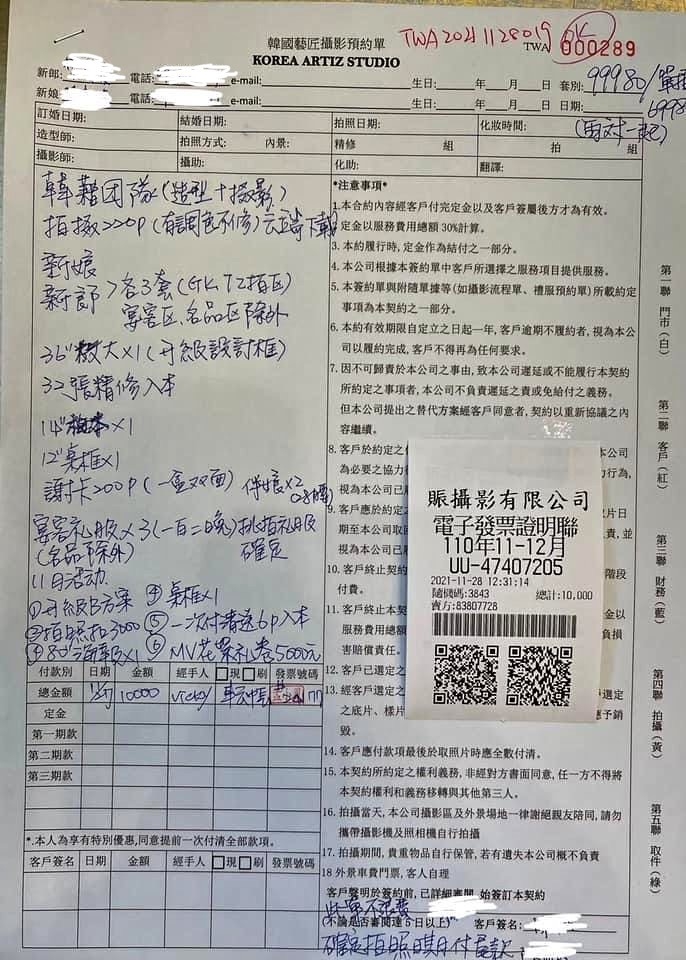 韓國藝匠攝影預約單
KOREA ARTIZ STUDIO
TWA20211128019
OK
TWA 000289
新郎: 電話: e-mail: 生日: 年 月 日 套別: 99980/單
新娘: 電話: e-mail: 生日: 年 月 日 日期: 6998
訂婚日期: 結婚日期: 拍照日期: 化妝時間:
(兩對一起)
造型師: 拍照方式: 內景: 精修 組 拍 組
攝影師: 攝助: 化助: 翻譯:
韓籍团隊(造型+攝影)
拍攝220P(有調色不修)云端下載
新娘
新郎 > 各3套(GK、TZ拍区)
宴客区、名品区除外
36"放大x1(升級設計框)
32張精修入本
14" x1
12"桌框x1
謝卡200P(一盒双面) 伴娘x2
宴客礼服x3(一白二晚)挑拍礼服
(名品除外) 確定
11月活动
①升級B方案 ④桌框x1
拍照扣3000 ⑤一次付清送6p入本
80" 海報x1 ⑥MV花菜礼卷5000元
付款別 日期 金額 經手人 □現□刷 發票號碼
總金額 10000 Vicky
定金
第一期款
第二期款
第三期款
*.本人為享有特別優惠,同意提前一次付清全部款項。
客戶簽名 日期 金額 經手人 □現□刷 發票號碼
*注意事項*
1.本合約內容經客戶付完定金以及客戶簽屬後方才為有效。
定金以服務費用總額30%計算。
3.本約履行時,定金作為結付之一部分。
4.本公司根據本簽約單中客戶所選擇之服務項目提供服務。
5.本簽約單與附隨單據等(如攝影流程單、禮服預約單)所載約定
事項為本契約之一部分。
6.本約有效期限自定立之日起一年,客戶逾期不履約者,視為本公
司以履約完成,客戶不得再為任何要求。
7.因不可歸責於本公司之事由,致本公司遲延或不能履行本契約
所約定之事項者,本公司不負責遲延之責或免給付之義務。
但本公司提出之替代方案經客戶同意者,契約以重新協議之內
容繼續。
8.客戶於約定之 本公司
為必要之協力 行為,
視為本公司已
9.客戶應於約定 片日
期至本公司取 責,並
視為本公司已
10.客戶終止契約 階段
付費。
11.客戶終止本契 金以
服務費用總額 負損
害賠償責任。
12.客戶已選定之
13.經客戶選定之 選定
之底片、樣片 應予銷
毀。
14.客戶應付款項最後於取照片時應全數付清。
15.本契約所約定之權利義務,非經對方書面同意,任一方不得將
本契約權利和義務移轉與其他第三人。
16.拍攝當天,本公司攝影區及外景場地一律謝絕親友陪同,請勿
攜帶攝影機及照相機自行拍攝
17.拍攝期間,貴重物品自行保管,若有遺失本公司概不負責
18 外景車費門票,客人自理
客戶聲明於簽約前,已詳細審閱 始簽訂本契約
此單不退費
(不論是否審閱達5日以上) 客戶簽名:
確定拍照期付尾款
賑攝影有限公司
電子發票證明聯
110年11-12月
UU-47407205
2021-11-28 12:31:14
隨機碼:3843 總計:10,000
賣方:83807728
第一聯 門市(白)
第二聯 客戶(紅)
第三聯 財務(藍)
第四聯 拍攝(黃)
第五聯 取件(綠)